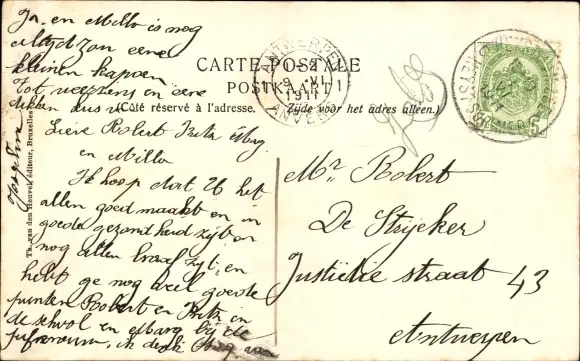 Ja, en Milla is nog
altijd zon eene
kleinen kapoen
tot weerziens en eene
dikken kus v
CARTE POSTALE
POSTKAART
(Côté réservé à l'adresse.
Zijde voor het adres alleen.)
ANTWERPEN
ANVERS
5
Lieve Robert Irita Marg.
en Milla
Ik hoop dat gij het
allen goed maakt en in
goede gezondheid zijt, en
nog allen braaf zijt, en
hebt ge nog veel goede
punten Robert en Irita in
de school en Marg bij de
jufvrouw, ik denk
Angelina
Th. van den Heuvel, éditeur, Bruxelles
Mr Robert
De Strijcker
Justicie straat 43
Antwerpen